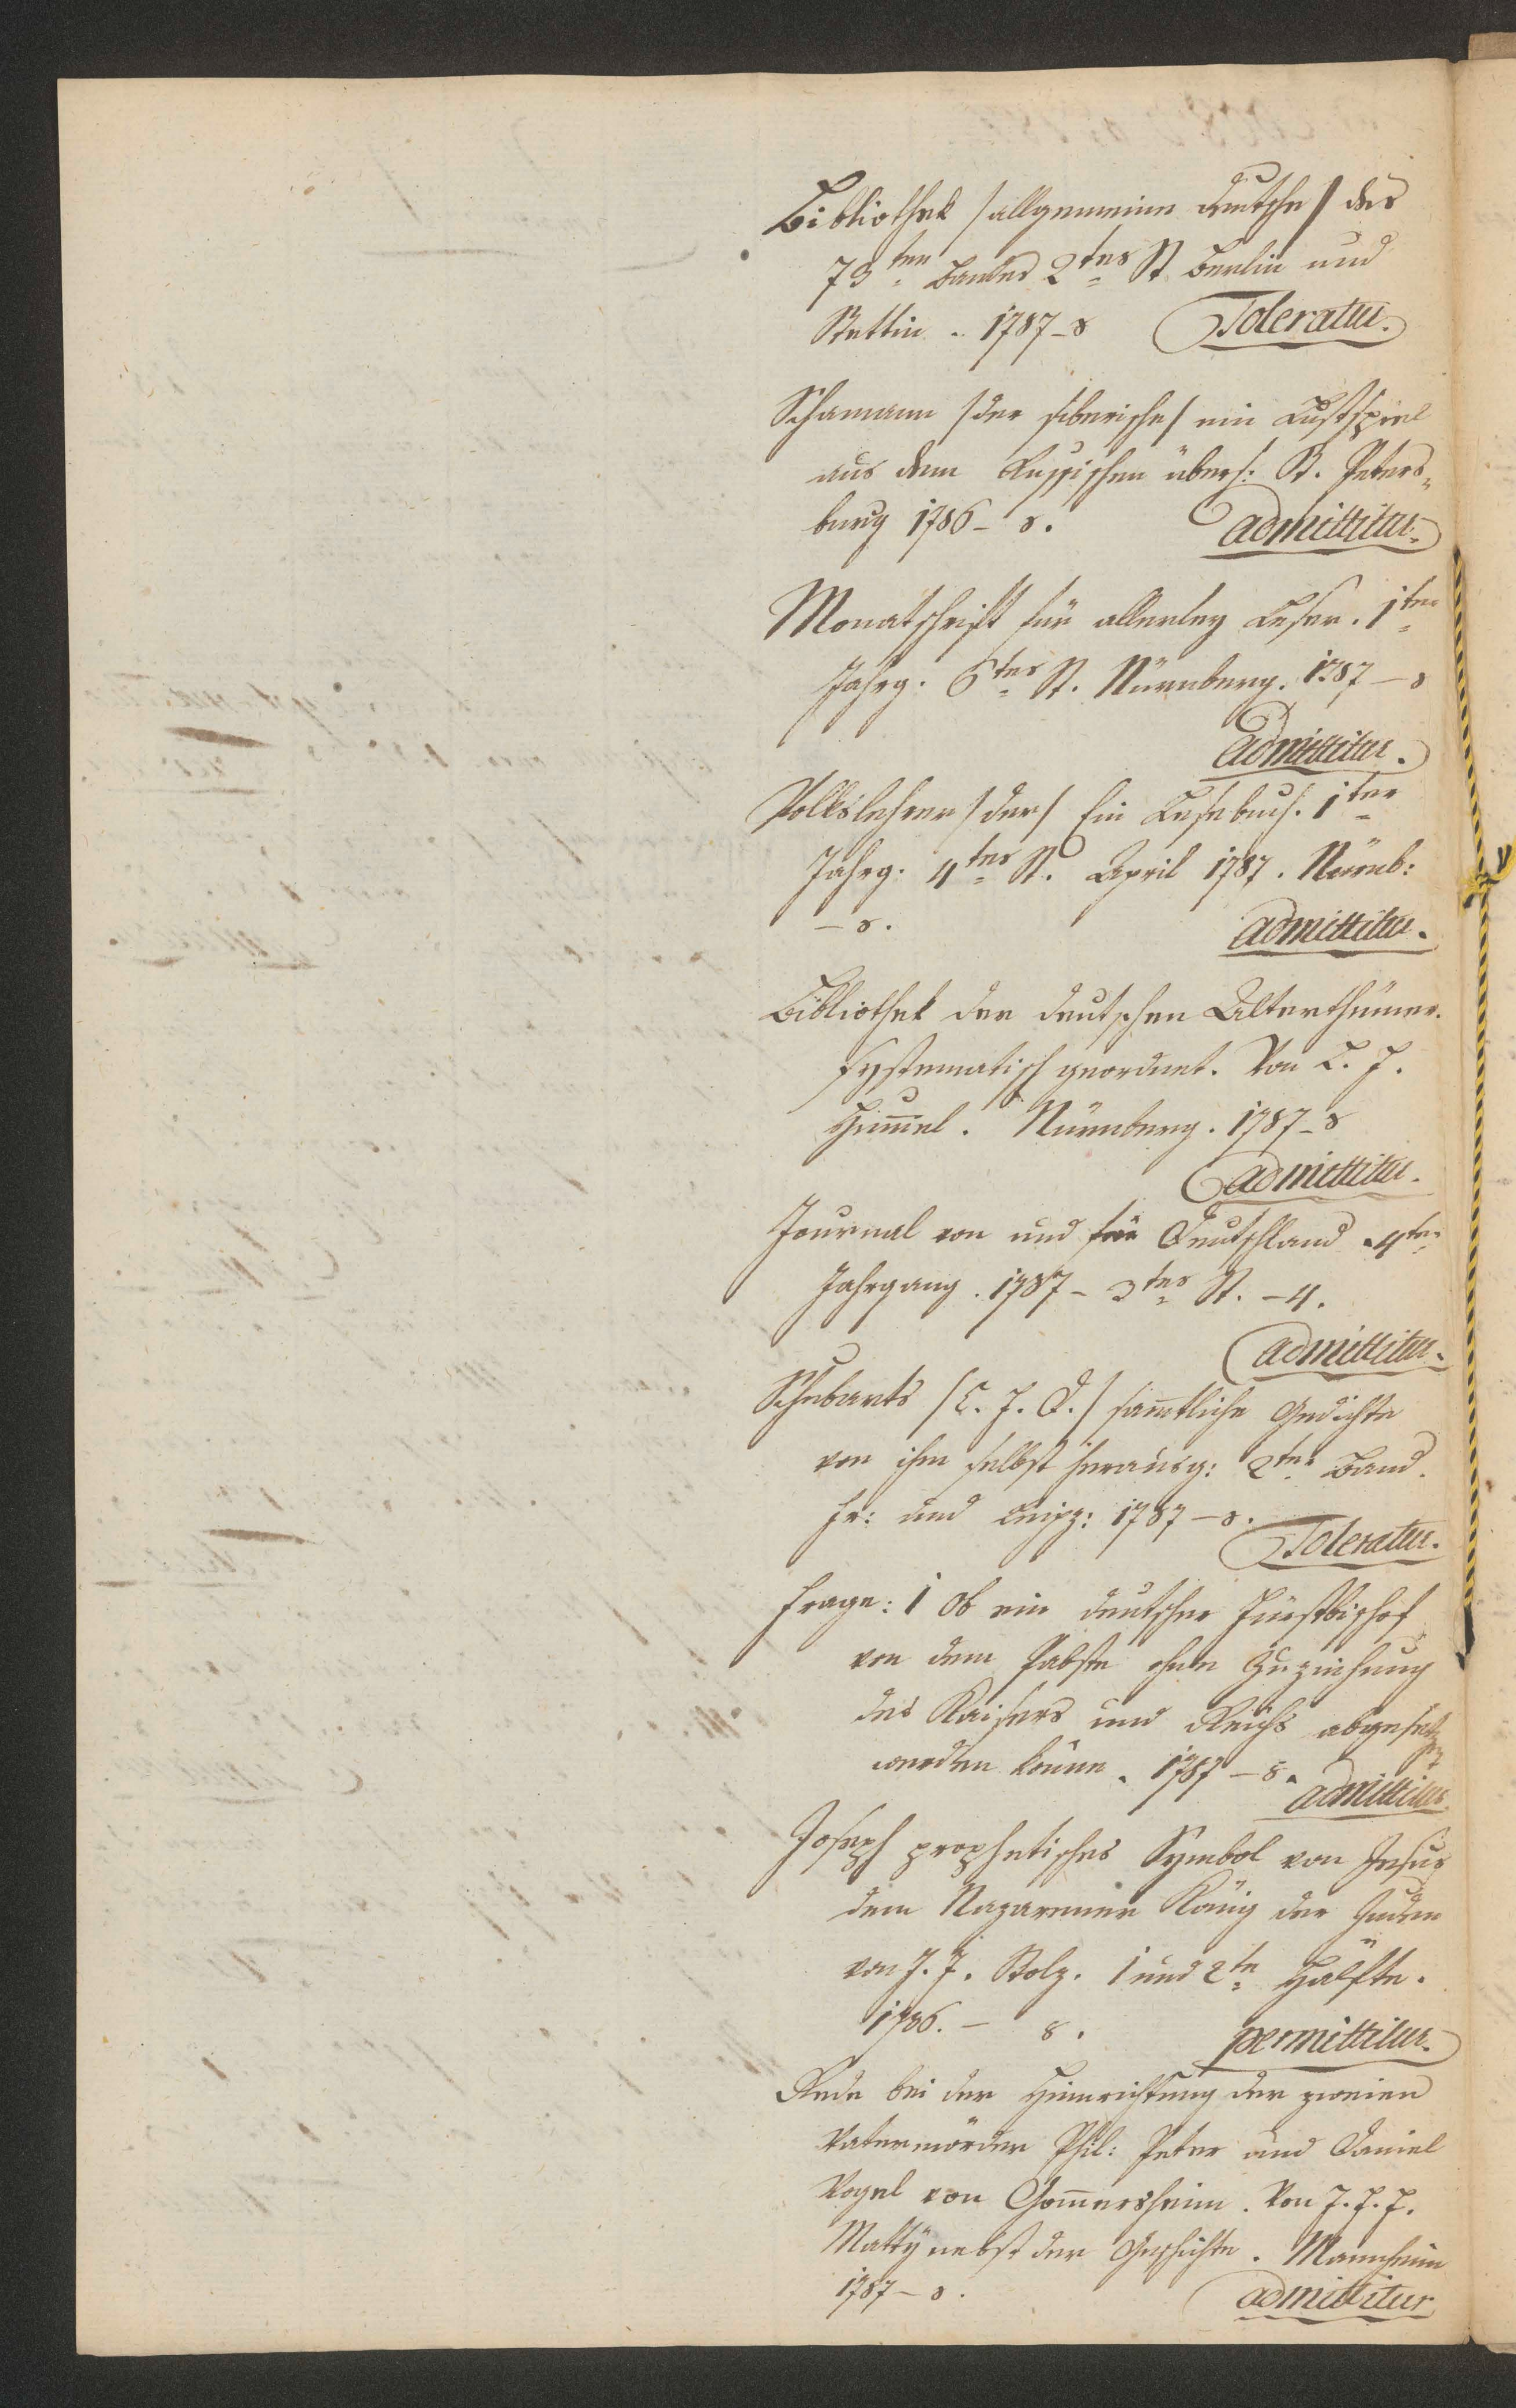 Bibliothek /allgemeine deutsche/ des
73ten Bandes 2tes St. Berlin und
Stettin. 1787 – 8 Toleratur.
Schamann /der sibirische/ ein Lustspiel
aus dem Russischen übers: St. Peters-
burg 1786 – 8. admittitur.
Monatschrift für allerley Leser. 1ter
Jahrg. 6tes St. Nürnberg. 1787 – 8
Admittitur.
Volkslehrer /der/ Ein Lesebuch. 1ter
Jahrg. 4tes St. April 1787. Nürnb:
– 8. admittitur.
Bibliothek der deutschen Alterthümer.
systematisch geordnet. Von B. F.
Hum̄el. Nürnberg. 1787 – 8
admittitur.
Journal von und für Deutschland. 4ter
Jahrgang. 1787 – 3tes St. – 4.
admittitur.
Schubarts /C. F. D./ sam̄tliche Gedichte
von ihm selbst herausg: 2ter Band.
Fr: und Leipz: 1787 – 8.
Toleratur.
Frage: 1 Ob ein deutscher Fürstbischof
von dem Pabste ohne Zuziehung
des Kaisers und Reichs abgesetzt
werden könne. 1787 – 8. admittitur.
Joseph prophetisches Symbol von Jesus
dem Nazarener König der Juden
von J. J. Stolz. 1 und 2te Hälfte.
1786. – 8. permittitur.
Rede bei der Hinrichtung der zweien
Vatermörder Phil: Peter und Daniel
Vogel von Gom̄ersheim. Von J. F. F.
Matty nebst der Geschichte. Mannheim
1787 – 8. admittitur